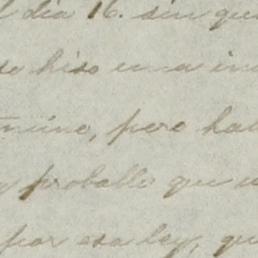 l dia 16. sin que
se hiso una in
mine, pero ha
y probable que
por esa ley, qu